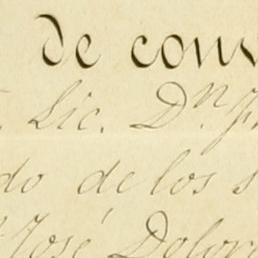 de conv
Lic. Dn. J
do de los s
José Dolor